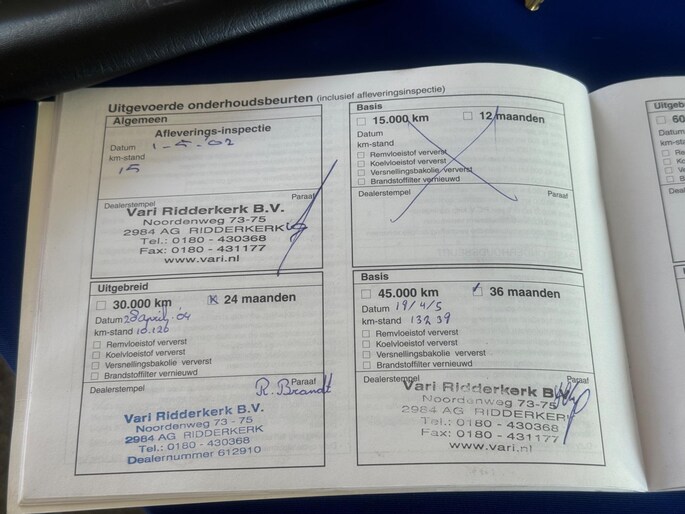 Uitgevoerde onderhoudsbeurten (inclusief afleveringsinspectie)
Algemeen
Afleverings-inspectie
Datum 1-5-'02
km-stand
15
Dealerstempel Paraaf
Vari Ridderkerk B.V.
Noordenweg 73-75
2984 AG RIDDERKERK
Tel.: 0180 - 430368
Fax: 0180 - 431177
www.vari.nl
Basis
15.000 km 12 maanden
Datum
km-stand
Remvloeistof ververst
Koelvloeistof ververst
Versnellingsbakolie ververst
Brandstoffilter vernieuwd
Dealerstempel Paraaf
Uitgebreid
30.000 km 24 maanden
Datum 28 april '04
km-stand 10.126
Remvloeistof ververst
Koelvloeistof ververst
Versnellingsbakolie ververst
Brandstoffilter vernieuwd
Dealerstempel Paraaf
R. Brandt
Vari Ridderkerk B.V.
Noordenweg 73-75
2984 AG RIDDERKERK
Tel.: 0180 - 430368
Dealernummer 612910
Basis
45.000 km 36 maanden
Datum 19/4/5
km-stand 13239
Remvloeistof ververst
Koelvloeistof ververst
Versnellingsbakolie ververst
Brandstoffilter vernieuwd
Dealerstempel Paraaf
Vari Ridderkerk B.V.
Noordenweg 73-75
2984 AG RIDDERKERK
Tel.: 0180 - 430368
Fax: 0180 - 431177
www.vari.nl